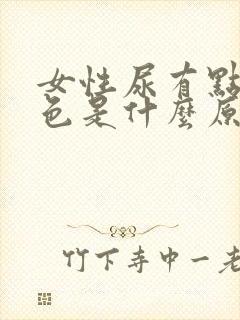 女性尿有點
色是什麼原
竹下寺中一老